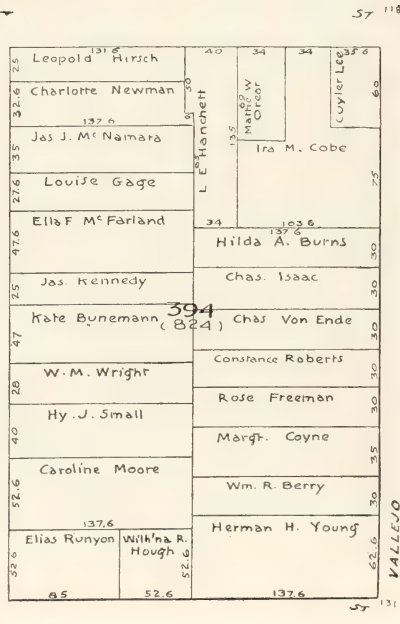 ST 118
131 6 40 34 34 35 6
25 Leopold Hirsch
32.6 Charlotte Newman 50
137.6 9
35 Jas J. Mc Namara
27.6 Louise Gage
47.6 Ella F Mc Farland
25 Jas. Kennedy
47 Kate Bunemann
28 W. M. Wright
40 Hy. J. Small
52.6 Caroline Moore
137.6
52 6 Elias Runyon
85
Wilh'na R.
Hough 52.6
52.6
L E Hanchett
65
137.5
34
Mattie W
Orear
60
Cuyler Lee 60
Ira M. Cobe 75
103 6
394
(824)
137 6
Hilda A. Burns 30
Chas. Isaac 30
Chas Von Ende 30
Constance Roberts 30
Rose Freeman 30
Margr. Coyne 35
Wm. R. Berry 30
Herman H. Young 62.6
137.6
VALLEJO
ST 131